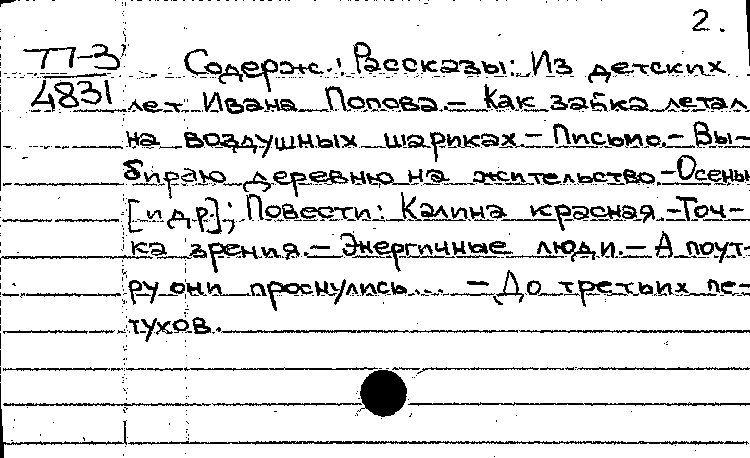 2.
ТП-3
4831
Содерж.: Рассказы: Из детских
лет Ивана Попова.- Как зайка летал
на воздушных шариках.- Письмо.- Вы-
бираю деревню на жительство.-Осенью
[и др.]; Повести: Калина красная.-Точ-
ка зрения.- Энергичные люди.- А поут-
ру они проснулись... - До третьих пе-
тухов.